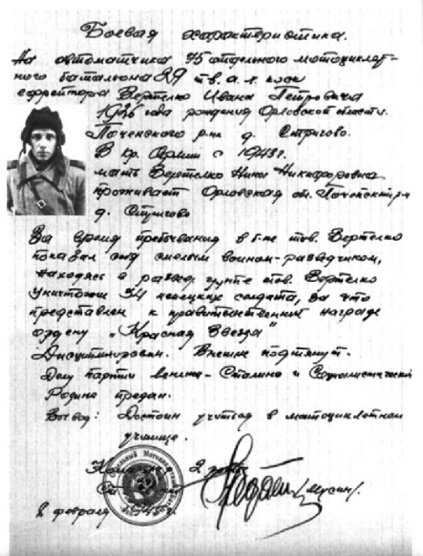 Боевая характеристика.
На автоматчика 75 отдельного мотоциклет-
ного батальона
ефрейтора Вертелко Ивана Петровича
1926 года рождения Орловской области.
Почепского р-на д. Стригово.
В Кр. Армии с 1943 г.
мать Вертелко Нина Никифоровна
проживает Орловская об. Почепский р-н
д. Стригово
За время пребывания в б-не тов. Вертелко
показал себя смелым воином-разведчиком,
находясь в развед. группе тов. Вертелко
уничтожил 34 немецких солдата, за что
представлен к правительственной награде
ордену „Красная Звезда"
Дисциплинирован. Внешне подтянут.
Делу партии Ленина-Сталина и Социалистической
Родине предан.
Вывод: Достоин учиться в мотоциклетном
училище.
2 роты
8 февраля 1945 г.